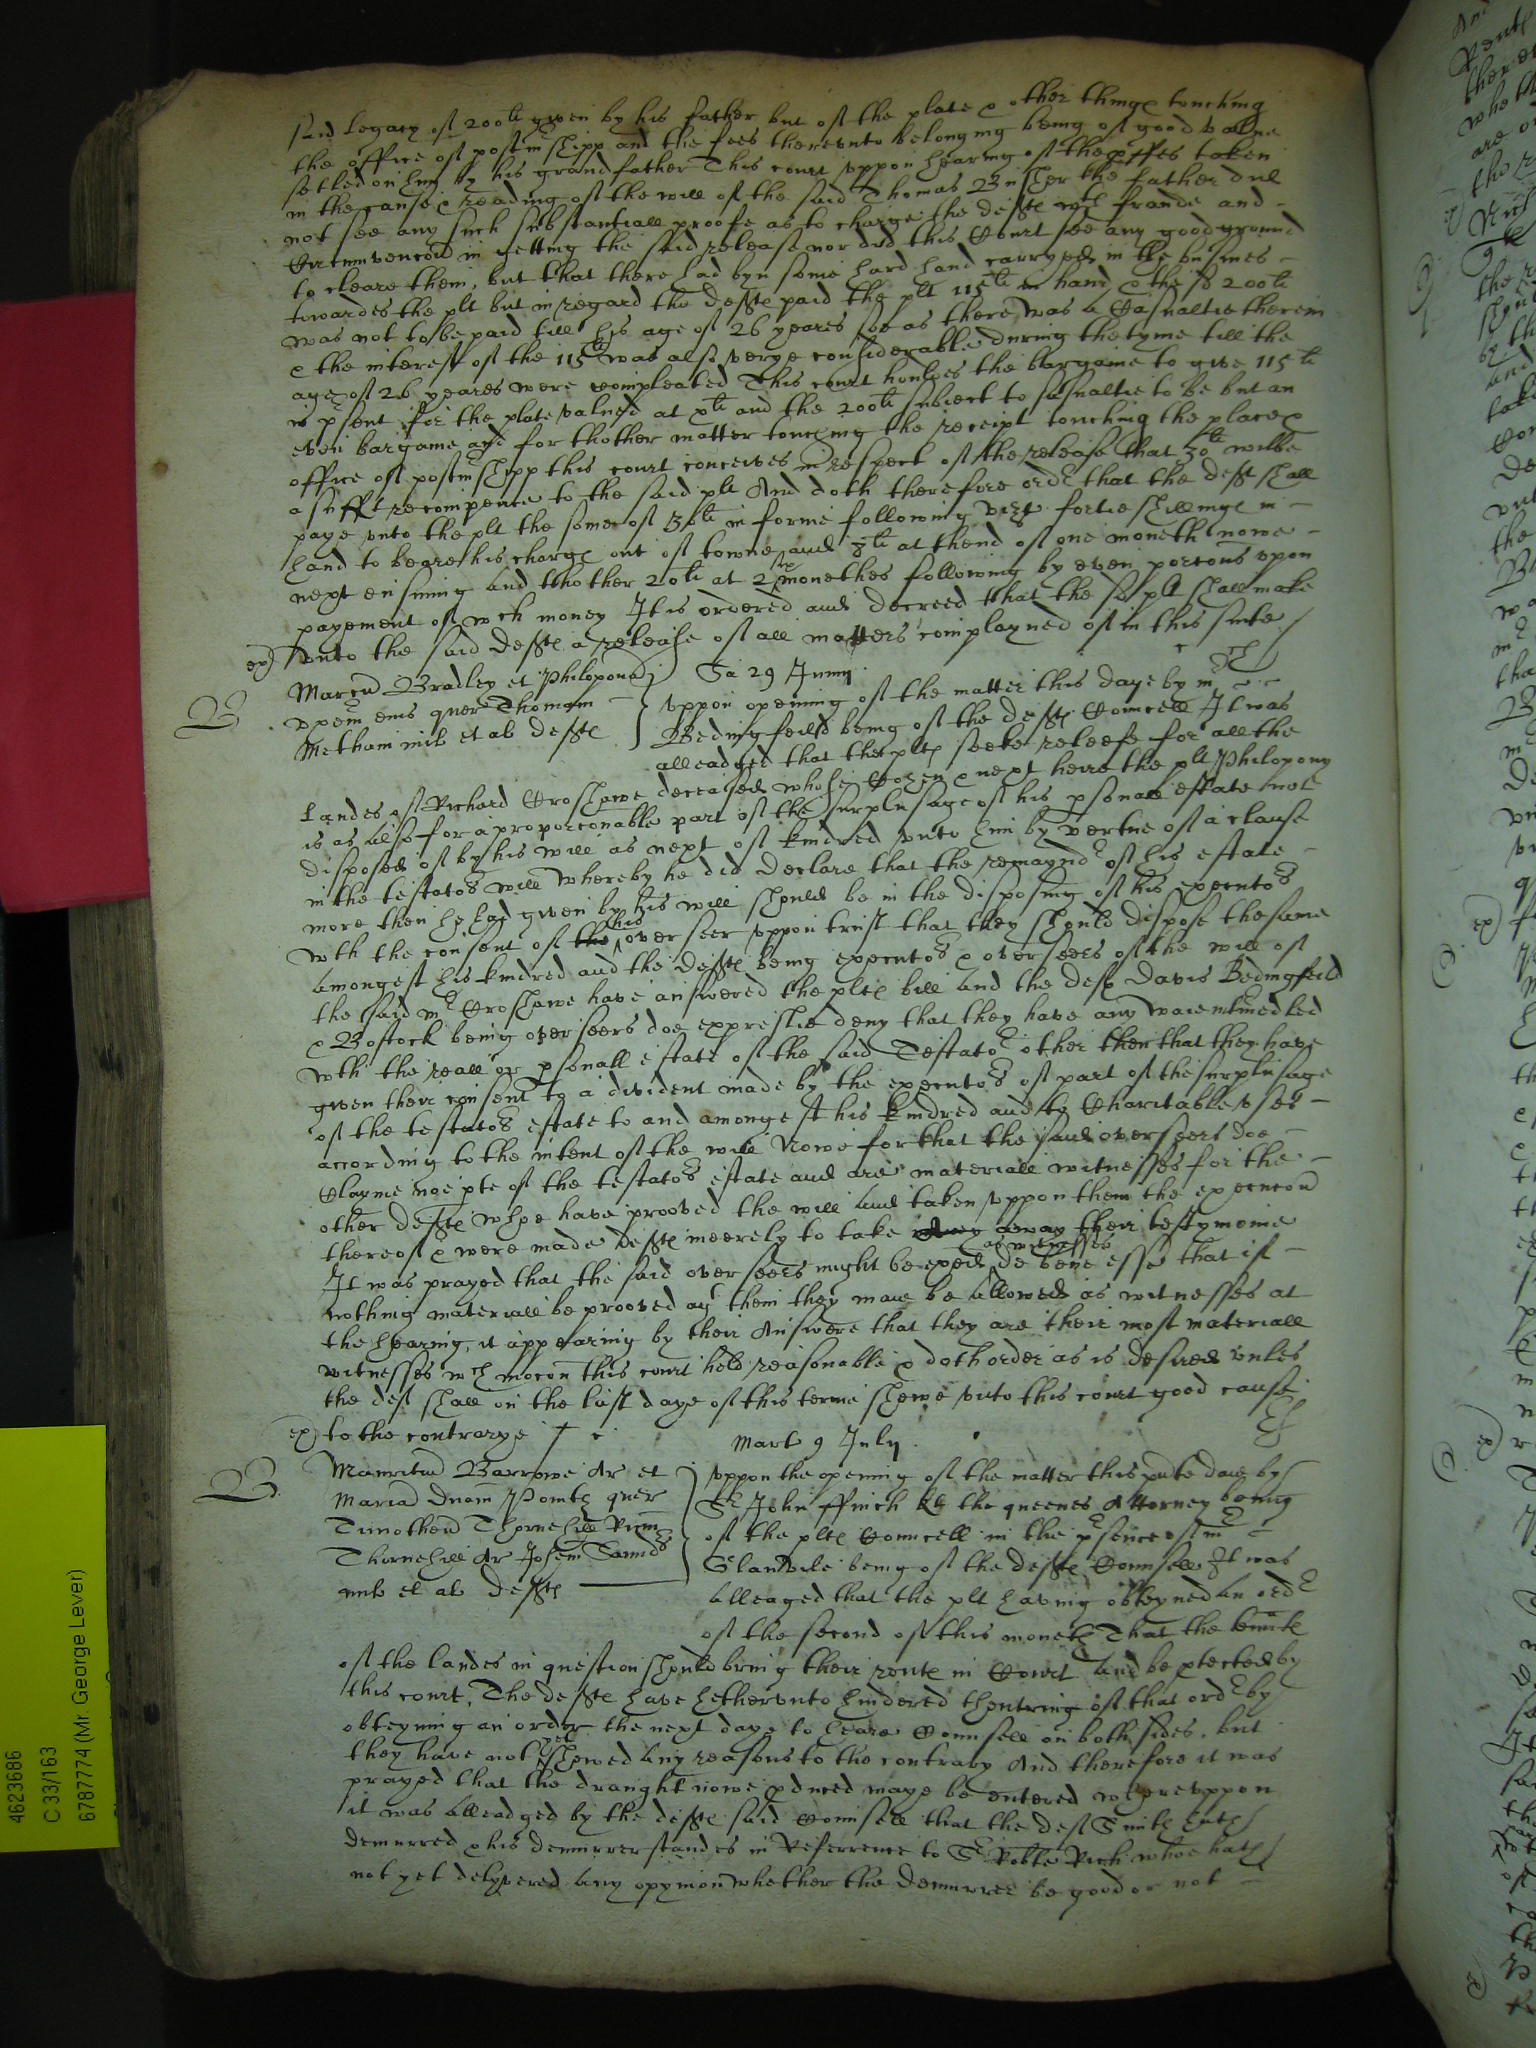 said legacy of 200li given by his father but of the plate & other thinges touching
the office of postmrshipp and the fees thereunto belonging being of good value
setled on him by his grandfather This court uppon hearing of the proffes taken
in the cause & reading of the will of the said Thomas the father did
not see any such substantiall proofe as to charge the deftes wth fraude and
Circumvencon in getting the said release nor did this Court see any good ground
to cleare them, but that there had byn some hard hand carryed in the busines
towardes the plt but in regard the deftes paid the plt 115li in hand & the sd 200li
was not to be paid till his age of 26 yeares soe as there was a Casualtie therein
& the interest of the 115li was also verye considerable during the tyme till the
age of 26 yeares were compleated This court houldes the bargaine to give 115li
in psent for the plate valued at xli and the 200li subiect to casualtie to be but an
even bargaine and for thother matter touching the receipt touching the place &
office of postmrshipp this court conceives in respect of the release that 30li wilbe
a sufft recompence to the said plt And doth therefore order that the deft shall
paye unto the plt the some of 30li in forme following vizt fortie shillinges in
hand to beare his charges out of towne and 8li at thend of one moneth nowe
next ensuing and thother 20li at 2 six monethes following by even porcons upon
payement of wch money It is ordered and decreed that the sd plt shall make
ex) unto the said deftes a release of all matters complayned of in this suite
B Martin Bradley et Philopona Sa 29 Junij
uxem eius quer Thomam uppon opening of the matter this daye by mr
Metham mil et al deftes Bedingfeild being of the deftes Councell It was
alleadged that the pltes seeke releefe for all the
Landes of Richard Croshawe deceased whose Cozen & next heire the plt Philopony
is as also for a proporconable part of the surplusage of his psonall estate not
disposed of by his will as next of kindred unto him by vertue of a clause
in the testators will whereby he did declare that the remaynder of his estate
more then he had given by his will should be in the disposing of his executors
wth the consent of the his overseer uppon trust that they should dispose the same
amongest his kindred and the deftes being executors & overseers of the will of
the said mr Croshawe have answered the pltes bill and the deftes Davis Bedingfeild
& Bostock being overseers doe expreslie deny that they have any waie intermedled
wth the reall or psonall estate of the said Testator other then that they have
given their consent to a divident made by the executors of part of the surplusage
of the testators estate to and amongest his kindred and to Charitable uses
according to the intent of the will Nowe for that the said overseers doe
Clayme noe pte of the testators estate and are materiall witnesses for the
other deftes whoe have prooved the will and taken uppon them the execucon
thereof & were made deftes meerely to take away their testymonie
It was prayed that the said overseers might be exed as witnesses de bene esse that if
nothing materiall be prooved agt them they maie be allowed as witnesses at
the hearing, it appearing by their Answere that they are their most materiall
witnesses wch mocon this court held reasonable & doth order as is desired unles
the deft shall on the last daye of this terme shewe unto this court good cause
ex) to the contrarye
Mart 9 July
B Mauritiu Barrowe Ar et uppon the opening of the matter this pnte daie by
Maria Dnam quer Sr John ffinch kt the queenes Attorney being
Timotheu Thornehill of the pltes Councell in the psence of mr
Thornehill Ar Josem Glanvile being of the deftes Counsell It was
mil et al deftes alleaged that the plt having obteyned an order
of the second of this moneth That the tenntes
of the landes in question should bring their rentes in Court and be ptected by
this court. The deftes have hetherunto hindered thentring of that order by
obteyning an order the next daye to heare Counsell on both sides. but
they have not yet shewed any reasons to the contrary And therefore it was
prayed that the draught nowe pduced maye be entered whereuppon
it was alleadged by the deftes said Counsell that the deft Smith hath
demurred & his demurrer standes in Referrence to Sr Robte Rich whoe hath
not yet delyvered any opynion whether the demurrer be good or not
4623686
C 33/163
6787774 (Mr. George Lever)